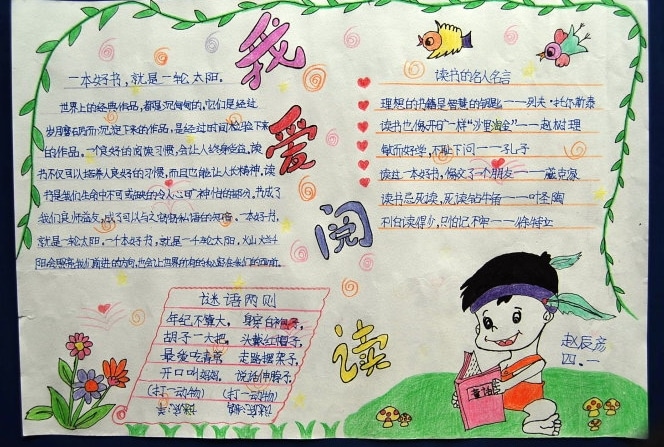 我爱阅读
一本好书，就是一轮太阳。
世界上的经典作品，都是沉甸甸的，它们是经过
岁月磨砺而沉淀下来的作品，是经过时间检验下来
的作品。一个良好的阅读习惯，会让人终身受益。读
书不仅可以培养人良好的习惯，而且也能让人长精神，读
书是我们生命中不可或缺的令人心旷神怡的部分，书成了
我们良师益友，成了可以与之窃窃私语的知音。一本好书，
就是一轮太阳，一千本好书，就是一千轮太阳，
阳会照亮我们前进的方向，也会让世界所有的秘密在我们的面前。
读书的名人名言
理想的书籍是智慧的钥匙——列夫·托尔斯泰
读书也像开矿一样"沙里淘金"——赵树理
敏而好学，不耻下问——孔子
读过一本好书，像交了个朋友——臧克家
读书忌死读，死读钻牛角——叶圣陶
不怕读得少，只怕记不牢——徐特立
谜语两则
年纪不算大，身穿白袍子，
胡子一大把，头戴红帽子，
最爱吃青菜，走路摆架子，
开口叫妈妈。说话伸脖子。
(打一动物) (打一动物)
童话
赵辰房
四.一